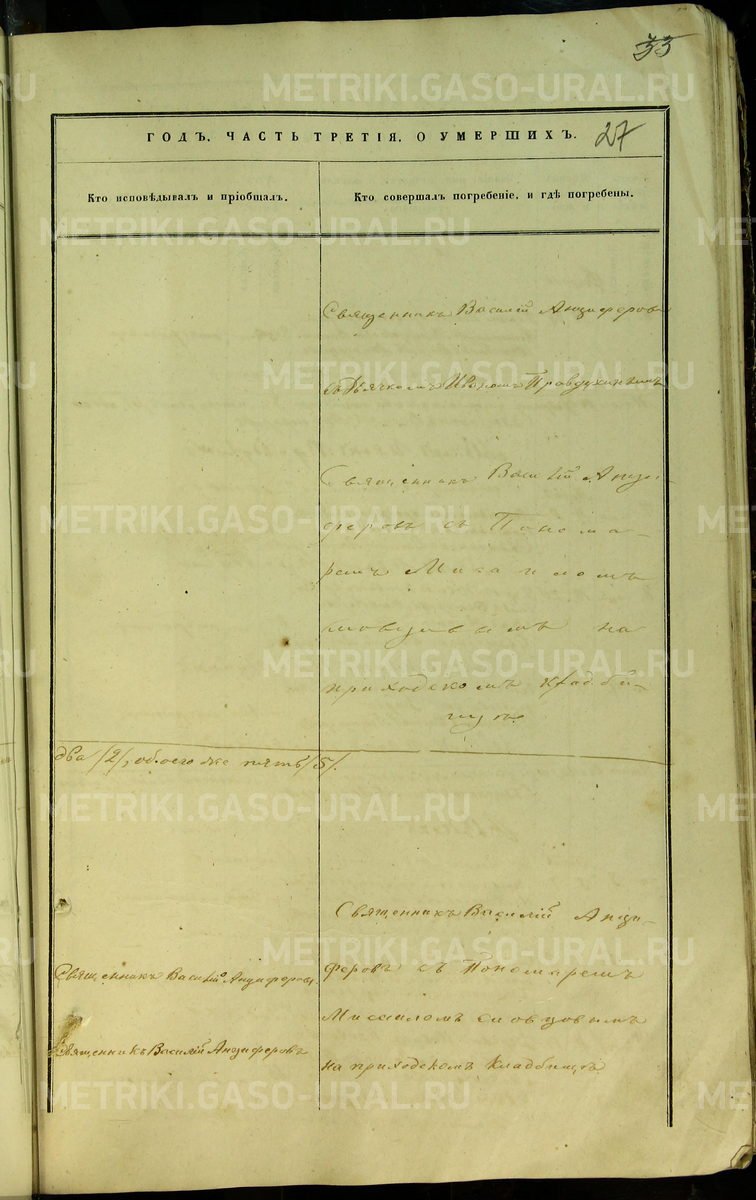 33
ГОДЪ. ЧАСТЬ ТРЕТІЯ. О УМЕРШИХЪ.
27
Кто исповѣдывалъ и пріобщалъ.
Кто совершалъ погребеніе, и гдѣ погребены.
Священникъ Василій Анциферовъ
съ Дьячкомъ Иваномъ
Священникъ Василій Анци-
феровъ съ Понома-
ремъ Михаиломъ
Словцовымъ на
приходскомъ кладби-
щѣ.
два /2/, обоего же пять /5/.
Священникъ Василій Анциферовъ
Священникъ Василій Анциферовъ
Священникъ Василій Анци-
феровъ съ Пономаремъ
Михаиломъ Словцовымъ
на приходскомъ кладбищѣ
METRIKI.GASO-URAL.RU